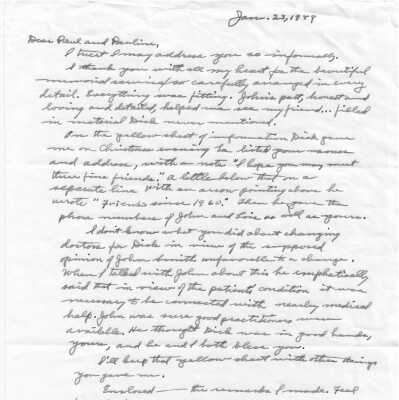 Jan. 23, 1989
Dear Paul and Pauline,
I trust I may address you so informally.
I thank you with all my heart for the beautiful
memorial service so carefully arranged in every
detail. Everything was fitting. John's part, honest and
loving and detailed, helped me see my friend... filled
in material Dick never mentioned.
On the yellow sheet of information Dick gave
me on Christmas evening he listed your names
and address, with a note "I hope you may meet
these fine friends." A little below that on a
separate line with an arrow pointing above he
wrote "Friends since 1960." Then he gave the
phone numbers of John and Lois as well as yours.
I don't know what you did about changing
doctors for Dick in view of the supposed
opinion of John Smith unfavorable to a change.
When I talked with John about this he emphatically
said that in view of the patient's condition it was
necessary to be connected with nearby medical
help. John was sure good practitioners were
available. He thought Dick was in good hands,
yours, and he and I both bless you.
I'll keep that yellow sheet with other things
you gave me.
Enclosed — the remarks I made. Feel